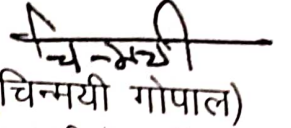 चिन्मयी
चिन्मयी गोपाल)